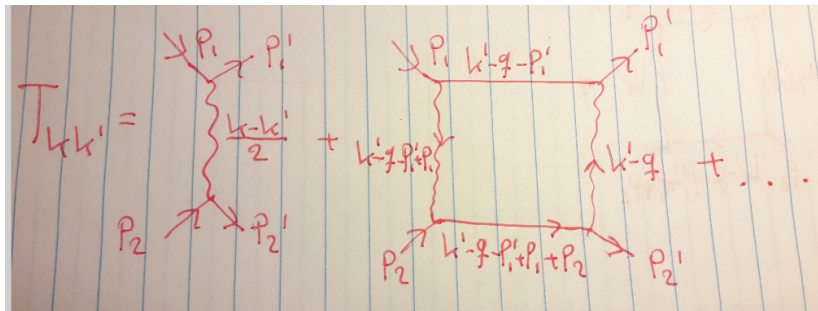 P₁ P₁'
T_{kk'} = (k-k')/2 +
P₂ P₂'
P₁ k'-q-P₁' P₁'
k'-q-P₁'+P₁ k'-q + ....
P₂ k'-q-P₁'+P₁+P₂ P₂'